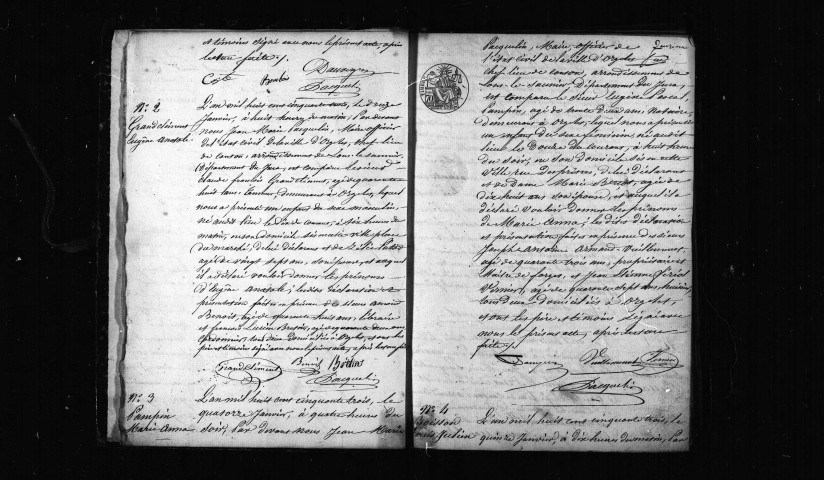 et témoins signé avec nous le présent acte, après
lecture faite ./.
Bacquelin
N.° 2
Grandclément
Eugène Anatole
L'an mil huit cent cinquante trois, le douze
Janvier, à huit heures du matin, Par devant
nous Jean Marie Pacquelin, Maire officier
de l'état civil de la ville d'Orgelet, chef-lieu
de canton, arrondissement de Lons le Saunier
Département du Jura, est comparu le sieur
Claude François Grandclément, agé de quarante
huit ans, demeurant à Orgelet, lequel
nous a présenté un enfant du sexe masculin,
né audit lieu le dix du courant, à six heures du
matin, en son domicile dite ville place
du marché, de lui déclarant et de
agée de vingt sept ans, son épouse, et auquel
il a déclaré vouloir donner les prénoms
d'Eugène Anatole; lesdites déclaration et
présentation faites en présence de
Benoit, agé de quarante huit ans, libraire
et François Lucien agé de quarante deux ans
tous deux domiciliés à Orgelet, et ont les
père et témoins signé avec nous le présent acte, après lecture faite
Grandclément Benoit
Pacquelin
N.° 3
Pampin
Marie Anna
L'an mil huit cent cinquante trois, le
quatorze Janvier, à quatre heures du
soir, Par devant nous Jean Marie
Pacquelin, Maire, officier de
l'état civil de la ville d'Orgelet
chef lieu de canton, arrondissement de
Lons-le-Saunier, Département du Jura,
est comparu le Sieur Eugène Pascal
Pampin, agé de trente deux ans, Notaire
demeurant à Orgelet, lequel nous a présenté
un enfant du sexe féminin, né audit
lieu le Douze du courant, à huit heures
du soir, en son domicile dite
ville, rue des prisons, de lui Déclarant
et de Dame Marie Benoit, agée de
dix huit ans son épouse, et auquel il a
déclaré vouloir Donner les prénoms
de Marie Anna; les dites déclaration
et présentation faites en présence des sieurs
Joseph Antoine Armand Vuillermet,
agé de quarante trois ans, propriétaire et
Maître de forges, et Jean Etienne
Vernier, agé de quarante sept ans, huissier,
tous Deux Domiciliés à Orgelet,
et ont les père et témoins signé avec
nous le présent acte, après lecture
faite ./.
Pampin Vuillermet Vernier
Pacquelin
N.° 4
Buisson
L'an mil huit cent cinquante trois, le
quinze Janvier, à dix heures du matin, Par